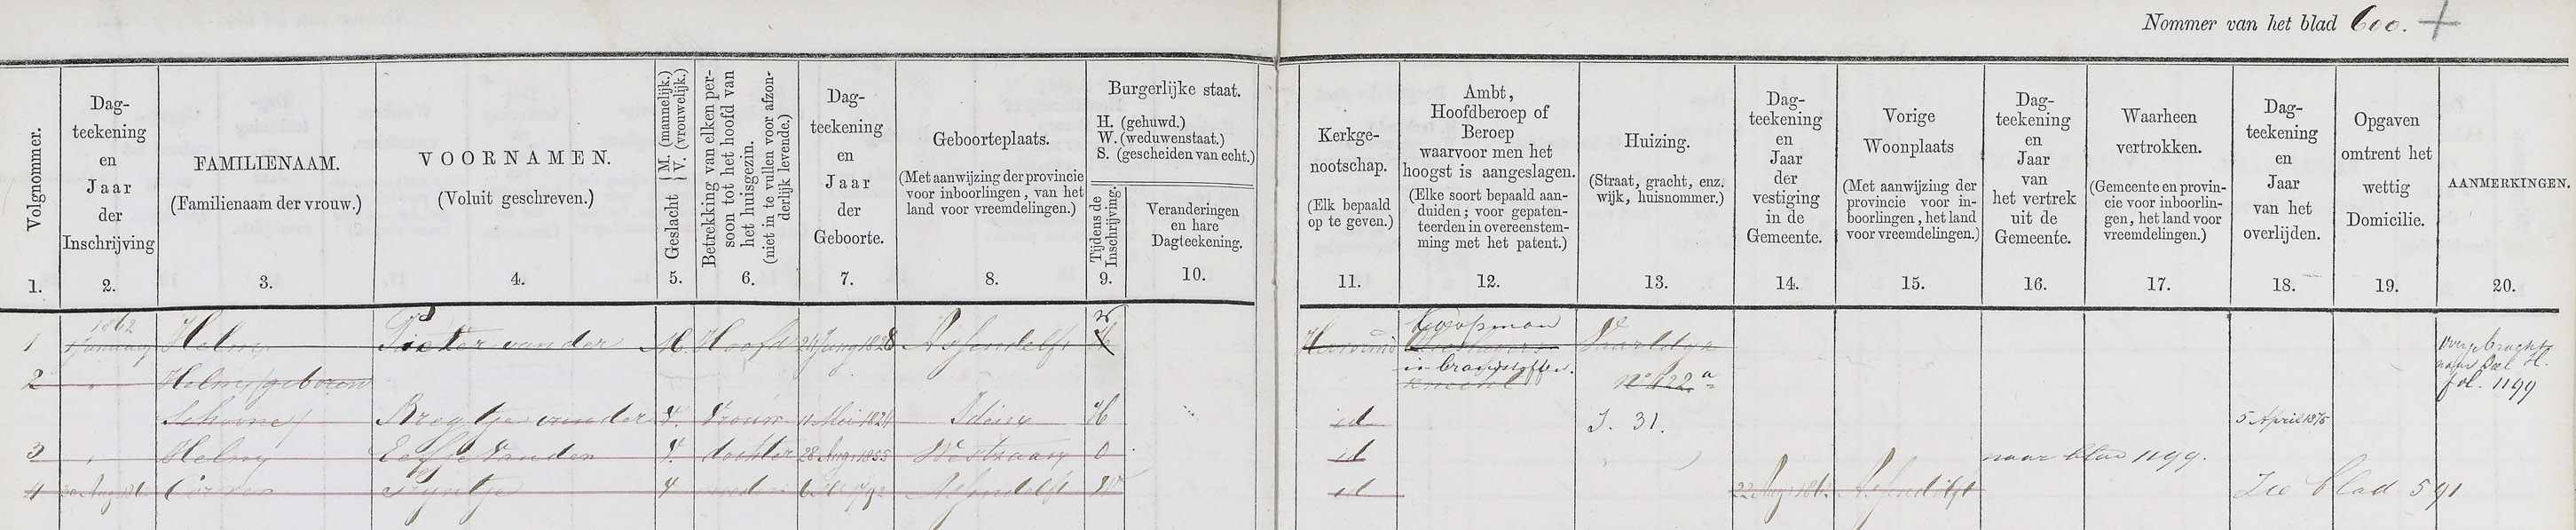 Nommer van het blad 600.
Volgnommer.
1.
Dag-
teekening
en
Jaar
der
Inschrijving
2.
FAMILIENAAM.
(Familienaam der vrouw.)
3.
VOORNAMEN.
(Voluit geschreven.)
4.
Geslacht { M. (mannelijk.) V. (vrouwelijk.)
5.
Betrekking van elken per-
soon tot het hoofd van
het huisgezin.
(niet in te vullen voor afzon-
derlijk levende.)
6.
Dag-
teekening
en
Jaar
der
Geboorte.
7.
Geboorteplaats.
(Met aanwijzing der provincie
voor inboorlingen, van het
land voor vreemdelingen.)
8.
Burgerlijke staat.
H. (gehuwd.)
W. (weduwenstaat.)
S. (gescheiden van echt.)
Tijdens de
Inschrijving.
9.
Veranderingen
en hare
Dagteekening.
10.
Kerkge-
nootschap.
(Elk bepaald
op te geven.)
11.
Ambt,
Hoofdberoep of
Beroep
waarvoor men het
hoogst is aangeslagen.
(Elke soort bepaald aan-
duiden; voor gepaten-
teerden in overeenstem-
ming met het patent.)
12.
Huizing.
(Straat, gracht, enz.
wijk, huisnommer.)
13.
Dag-
teekening
en
Jaar
der
vestiging
in de
Gemeente.
14.
Vorige
Woonplaats
(Met aanwijzing der
provincie voor in-
boorlingen, het land
voor vreemdelingen.)
15.
Dag-
teekening
en
Jaar
van
het vertrek
uit de
Gemeente.
16.
Waarheen
vertrokken.
(Gemeente en provin-
cie voor inboorlin-
gen, het land voor
vreemdelingen.)
17.
Dag-
teekening
en
Jaar
van het
overlijden.
18.
Opgaven
omtrent het
wettig
Domicilie.
19.
AANMERKINGEN.
20.
1862
1 January
1 Helmy Pieter van der M. Hoofd 1828 Assendelft H W
Koopman
in brandstoffen.
knecht
No 422 a
overgebragt
naar Deel H.
fol. 1199
2 " Helmy geboren
Schoone Bregtje van der V. vrouw 11 Mei 1824 Idem H id J. 31. 5 April 1875
3 " Helmy Eefje van der V. dochter 28 Aug 1855 Westzaan O id naar blad 1199.
4 Aug Corver Tryntje V moeder Assendelft W id 22 Aug Assendelft Zie blad 591